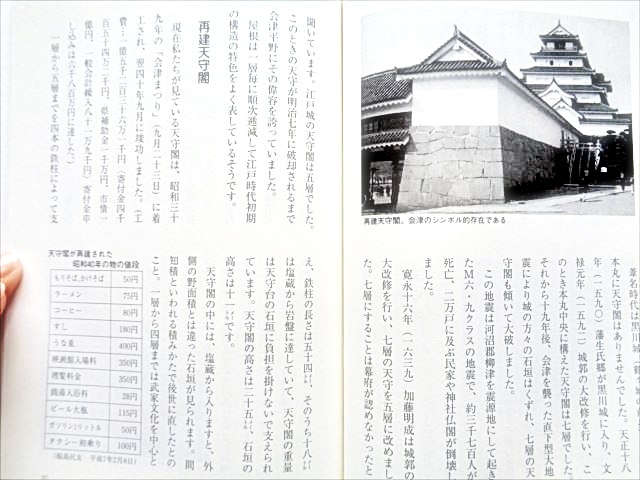 再建天守閣。会津のシンボル的存在である
葦名時代は黒川城
本丸に天守閣はありませんでした。天正十八
年（一五九〇）蒲生氏郷が黒川城に入り、文
禄元年（一五九二）城郭の大改修を行い、こ
のとき本丸中央に構えた天守閣は七層でした。
それから十九年後、会津を襲った直下型大地
震により城の方々の石垣はくずれ、七層の天
守閣も傾いて大破しました。
この地震は河沼郡柳津を震源地にして起き
たM六・九クラスの地震で、約三千七百人が
死亡、二万戸に及ぶ民家や神社仏閣が倒壊し
ました。
寛永十六年（一六三九）加藤明成は城郭の
大改修を行い、七層の天守を五層に改めまし
た。七層にすることは幕府が認めなかったと
聞いています。江戸城の天守閣は五層でした。
このときの天守が明治七年に破却されるまで
会津平野にその偉容を誇っていました。
屋根は一層毎に順次逓減して江戸時代初期
の構造の特色をよく表しているそうです。
再建天守閣
現在私たちが見ている天守閣は、昭和三十
九年の「会津まつり」（九月二十三日）に着
工され、翌四十年九月に竣功しました。（工
費一億五千二百三十六万一千円 寄付金四千
百五十四万二千円、県補助金一千万円、市債一
億円、一般会計繰入八十一万九千円）寄付金申
し込みは六千八百万円に達した）
一層から五層までを四本の鉄柱によって支
え、鉄柱の長さは五十四㍍、そのうち十八㍍
は塩蔵から岩盤に達していて、天守閣の重量
は天守台の石垣に負担を掛けないで支えられ
ています。天守閣の高さは二十五㍍、石垣の
高さは十一㍍です。
天守閣の中には、塩蔵から入りますと、外
側の野面積とは違った石垣が見られます。間
知積といわれる積みかたで後世に直したとの
こと。一層から四層までは武家文化を中心と
天守閣が再建された
昭和40年の物の値段
もりそば、かけそば 50円
ラーメン 75円
コーヒー 80円
すし 180円
うな重 400円
映画館入場料 350円
理髪料金 350円
銭湯入浴料 28円
ビール大瓶 115円
ガソリン1リットル 50円
タクシー初乗り 100円
（福島民友 平成7年2月6日）